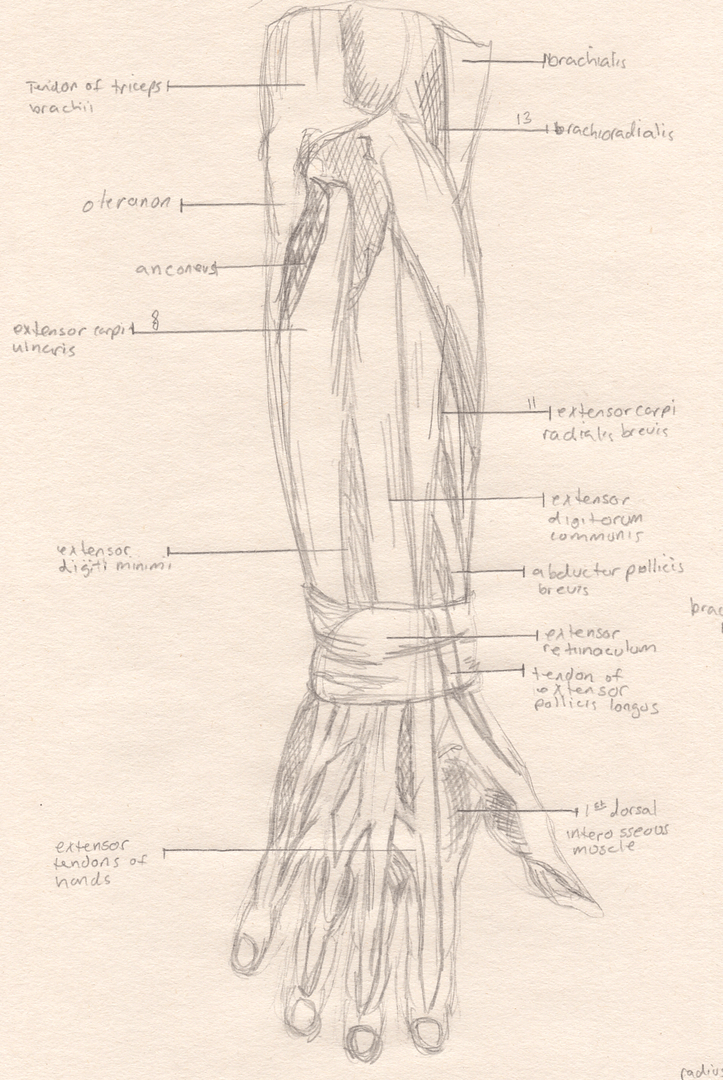 Tendon of triceps
brachii
oteranon
anconeus
8
extensor carpi
ulnaris
extensor
digiti minimi
extensor
tendons of
hands
brachialis
13
brachioradialis
11
extensor carpi
radialis brevis
extensor
digitorum
communis
abductor pollicis
brevis
brac
extensor
retinaculum
tendon of
extensor
pollicis longus
1st dorsal
interosseous
muscle
radius